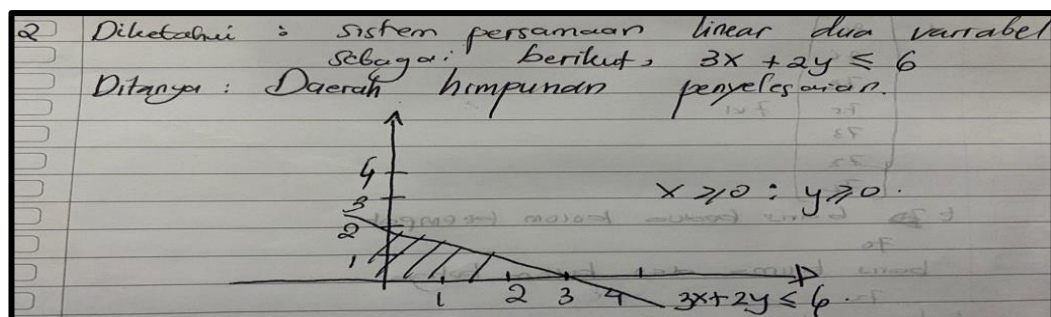 2 Diketahui : sistem persamaan linear dua variabel
sebagai berikut, 3x + 2y ≤ 6
Ditanya : Daerah himpunan penyelesaian.
4
3
2
1
x ≥ 0 ; y ≥ 0.
1 2 3 4 3x + 2y ≤ 6.